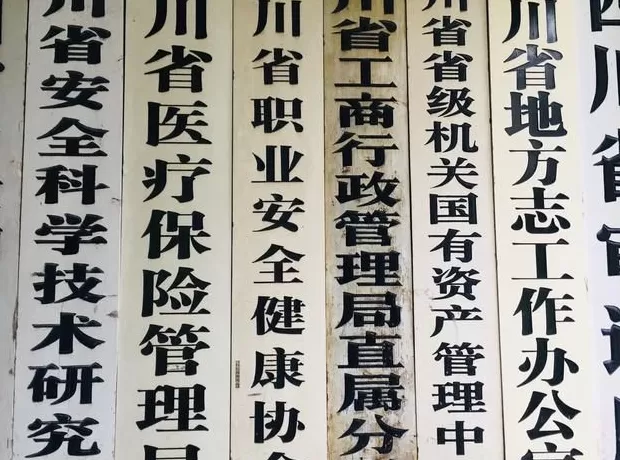 川省安全科学技术研究
川省医疗保险管理局
川省职业安全健康协会
川省工商行政管理局直属分
川省省级机关国有资产管理中
川省地方志工作办公室
四川省审